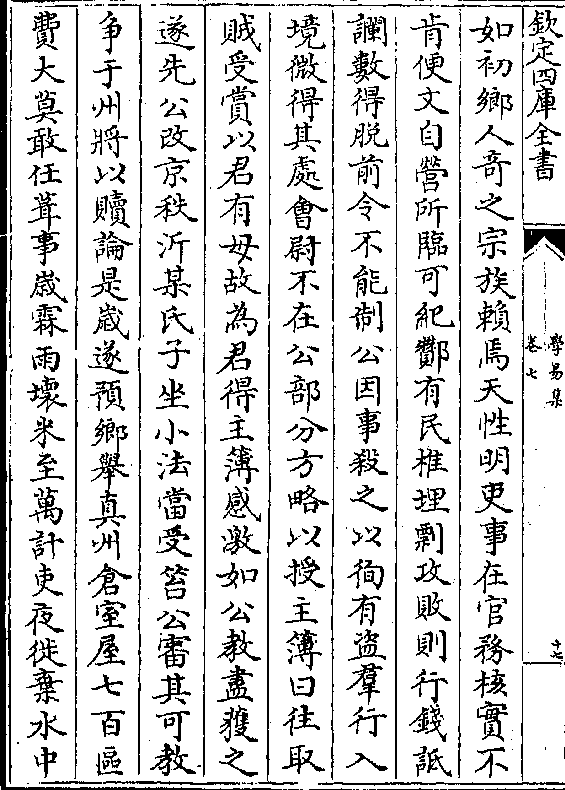 欽定四庫全書
學易集
卷七
十七
如初鄉人竒之宗族賴焉天性明吏事在官務核實不
肯便文自營所臨可紀酇有民椎埋剽攻敗則行錢詆
讕數得脱前令不能制公因事殺之以徇有盗羣行入
境微得其處會尉不在公部分方略以授主簿曰往取
賊受賞以君有母故為君得主簿感激如公教盡獲之
遂先公改京秩沂某氏子坐小法當受笞公審其可教
争于州將以贖論是歳遂預鄉舉真州倉室屋七百區
費大莫敢任葺事歳霖雨壊米至萬計吏夜徙棄水中